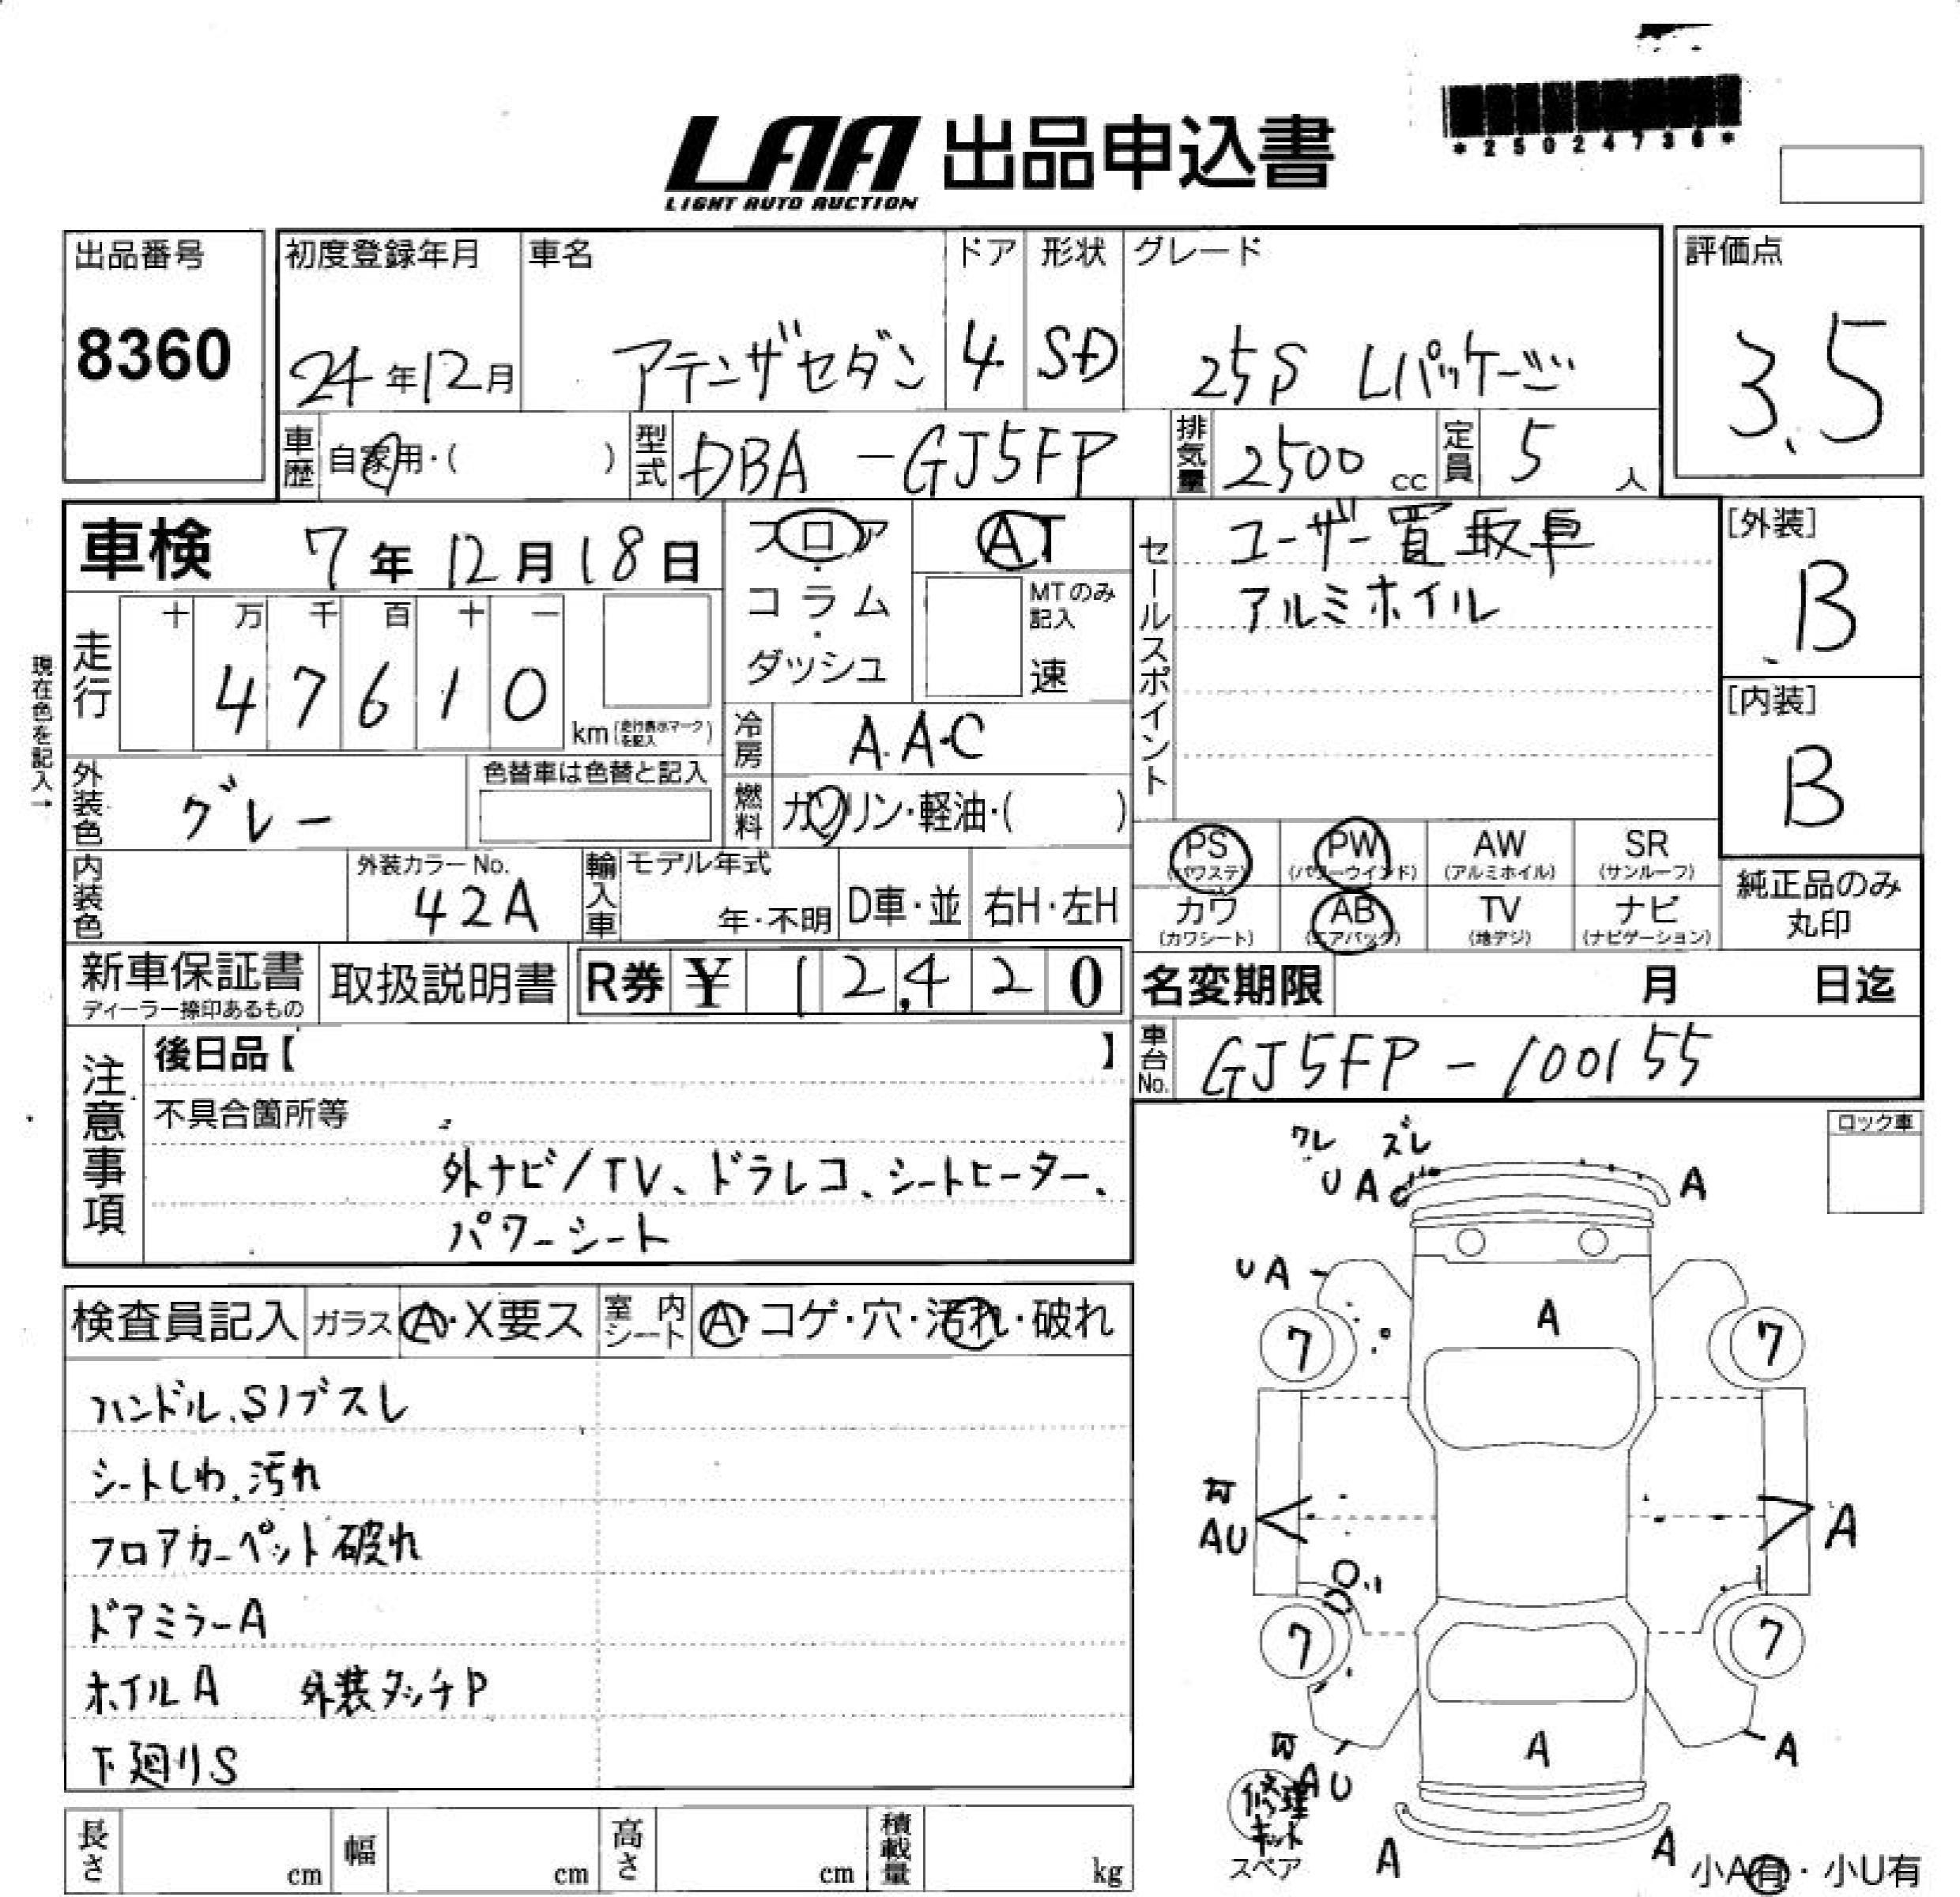 *25024736*
LAA 出品申込書
LIGHT AUTO AUCTION
出品番号
8360
初度登録年月
24年12月
車名
アテンザセダン
ドア
4
形状
SD
グレード
25S Lパッケージ
評価点
3.5
車歴 自家用・( )
型式 DBA-GJ5FP
排気量 2500 cc
定員 5 人
車検 7年12月18日
フロア・コラム・ダッシュ
AT
MTのみ記入
速
セールスポイント
ユーザー買取車
アルミホイル
[外装]
B
[内装]
B
現在色を記入→
走行
十 万 千 百 十 一
4 7 6 1 0
km (走行表示マークを記入)
冷房 A.A.C
外装色 グレー
色替車は色替と記入
燃料 ガソリン・軽油・( )
PS (パワステ)
PW (パワーウインド)
AW (アルミホイル)
SR (サンルーフ)
カワ (カワシート)
AB (エアバック)
TV (地デジ)
ナビ (ナビゲーション)
純正品のみ丸印
内装色
外装カラーNo.
42A
輸入車
モデル年式
年・不明
D車・並
右H・左H
新車保証書
ディーラー捺印あるもの
取扱説明書
R券 ¥ 12,420
名変期限 月 日迄
車台No. GJ5FP-100155
注意事項
後日品【 】
不具合箇所等
外ナビ/TV、ドラレコ、シートヒーター、
パワーシート
ロック車
検査員記入
ガラス A・X要ス
室内シート A・コゲ・穴・汚れ・破れ
ハンドル、Sノブスレ
シートしわ、汚れ
フロアカーペット破れ
ドアミラーA
ホイルA 外装タッチP
下廻りS
ワレ ズレ
UA A
UA
A
7 7
AU A
7 7
A
A
AU
修理キット
スペア
A A
小A有・小U有
長さ cm
幅 cm
高さ cm
積載量 kg